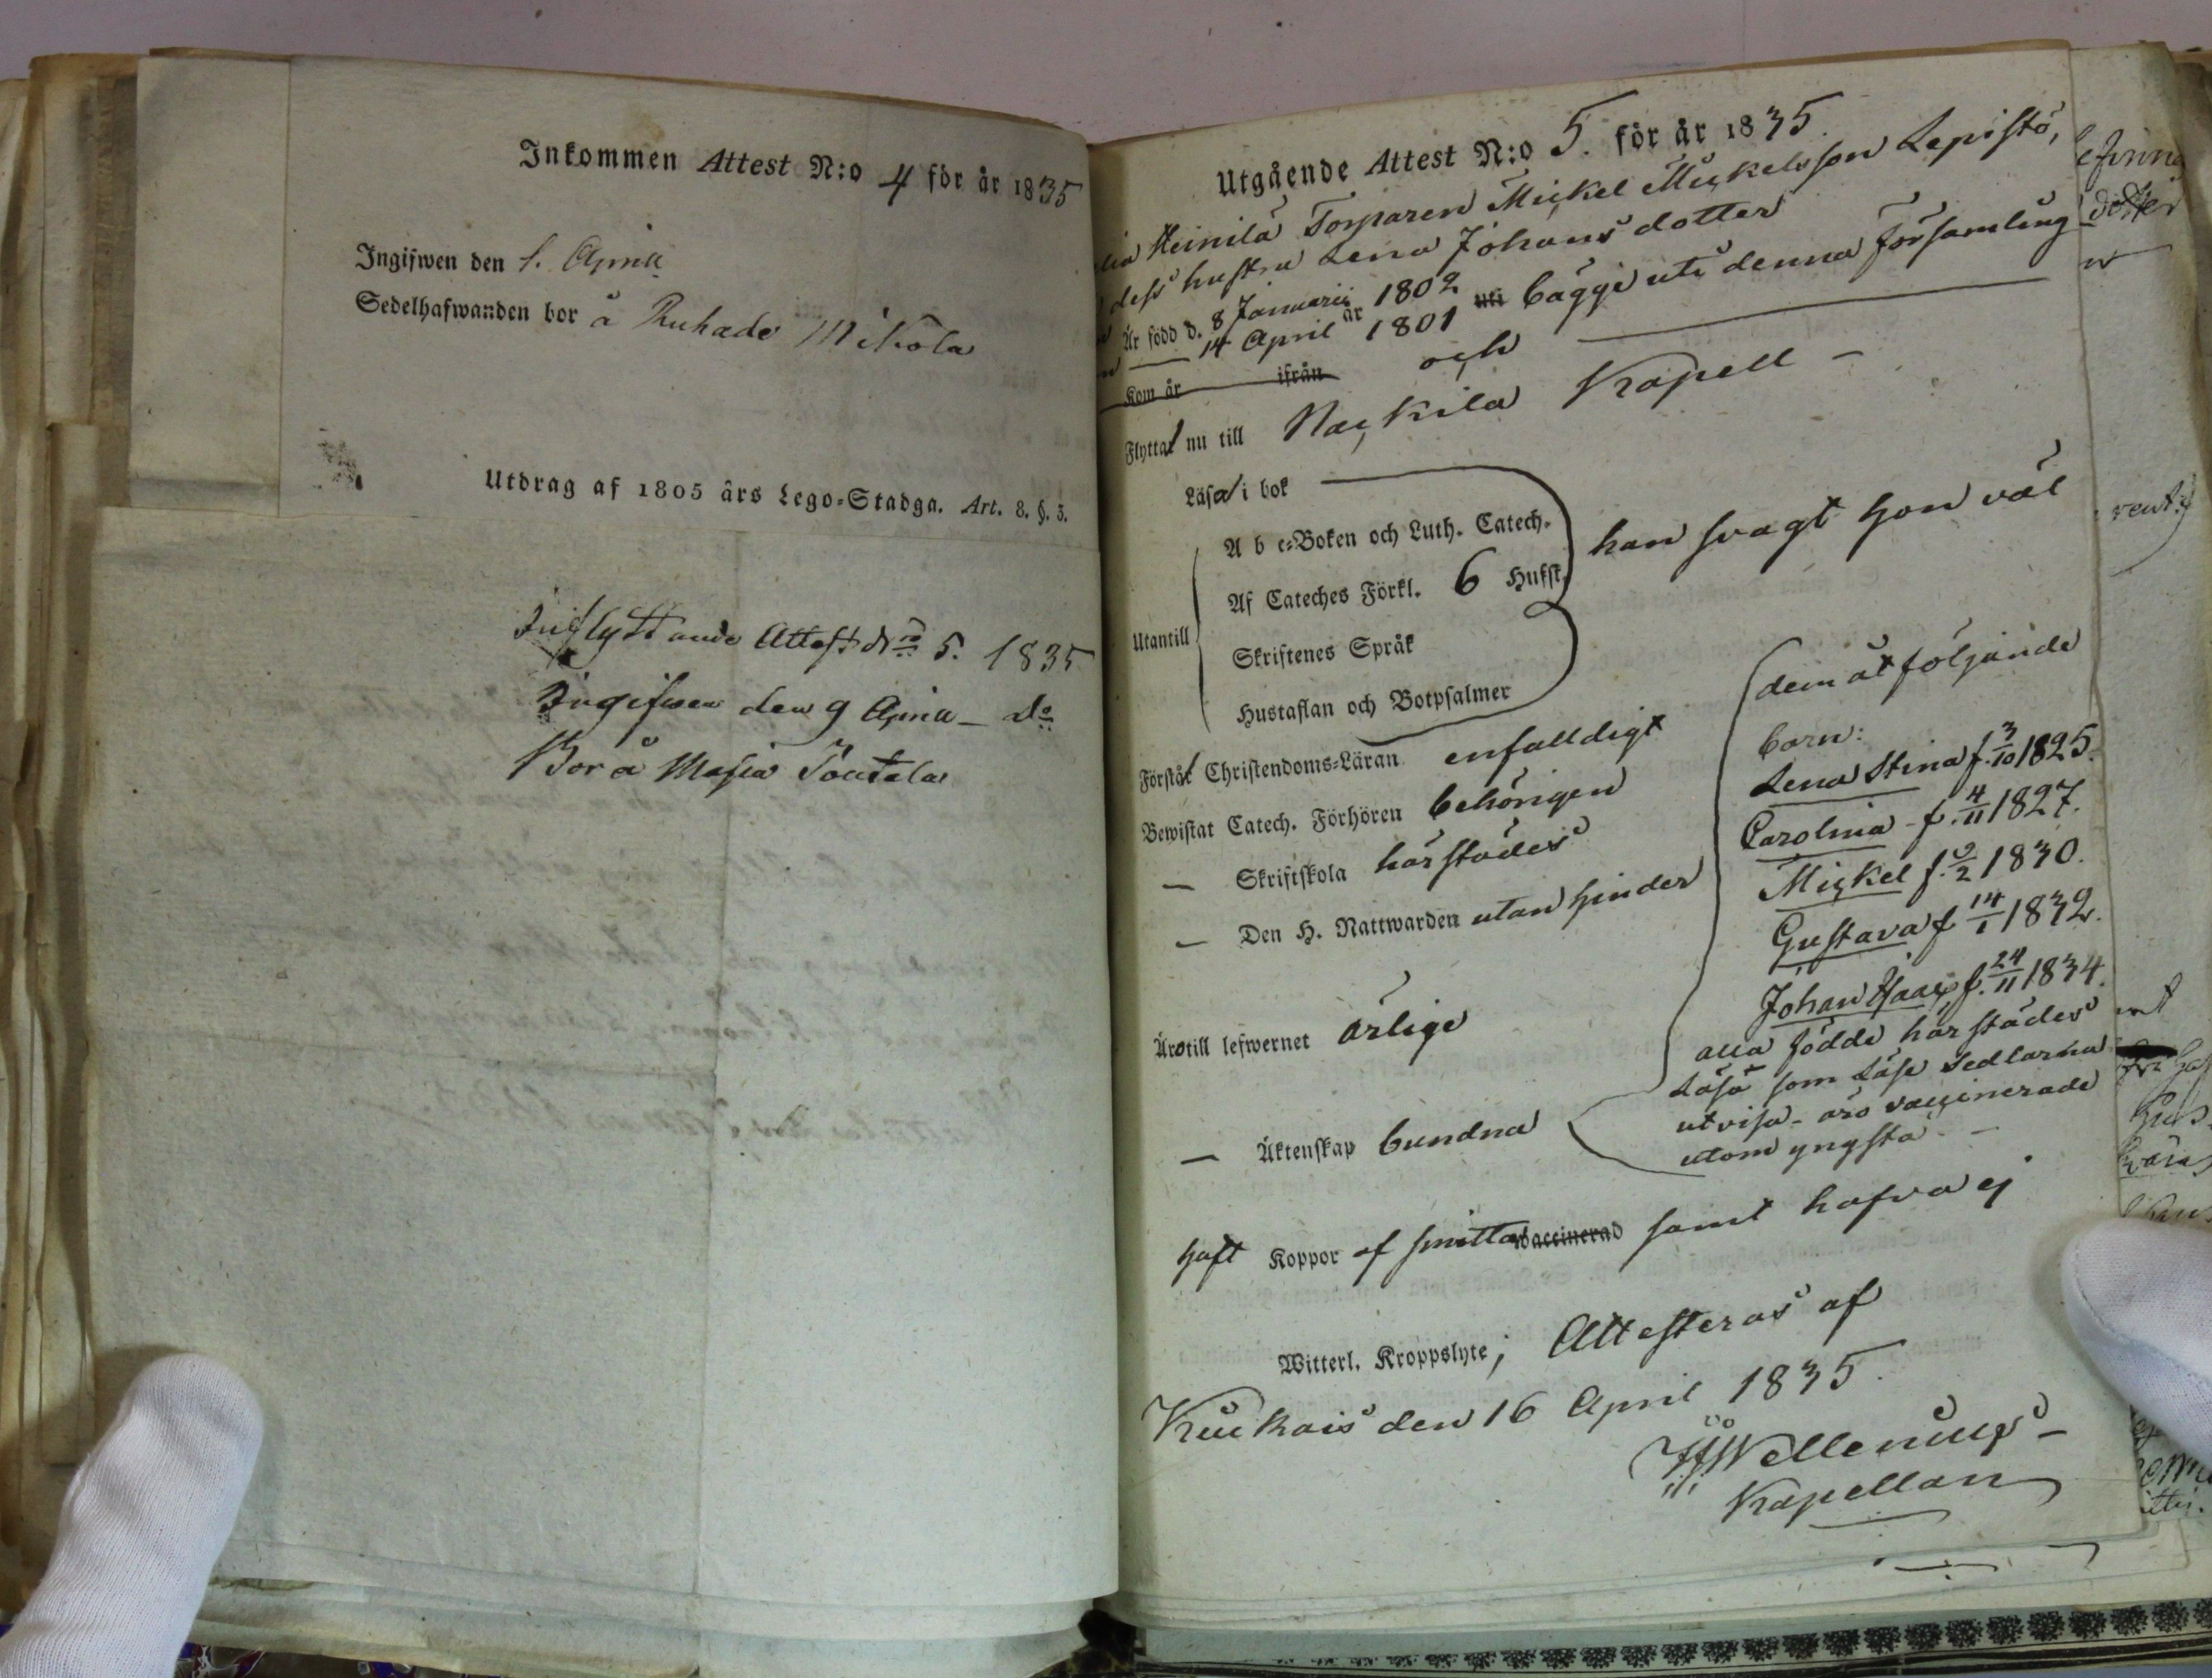 Inkommen Attest N:o 4 för år 1835
Ingifwen den 1. April
Sedelhafwanden bor å Ruhade Mikola
Utdrag af 1805 års Lego-Stadga. Art. 8. §. 3.
Inflyttande Attest No 5. 1835
Ingifwen den 9 April - do
Bor å Masia
Utgående Attest N:o 5. för år 1835.
Heinilä Torparen Mickel Mickelsson Lepistö,
dess hustru Lena Johansdotter
Är född d. 8 Januarii 1802
14 April år 1801 uti bägge uti denna församling
Kom år ifrån och
Flytta nu till Nackila Kapell -
Läsa i bok
A b c-Boken och Luth. Catech.
Af Cateches Förkl. 6 Hufst.
han svagt hon väl
Utantill
Skriftenes Språk
Hustaflan och Botpsalmer
Förstå Christendoms-Läran enfalldigt
Bewistat Catech. Förhören behörigen
— Skriftskola härstädes
— Den H. Nattwarden utan hinder
Äro till lefwernet ärlige
— Äktenskap bundna
dem åtföljande
barn:
Lena Stina f. 3/10 1825.
Carolina - f. 4/11 1827.
Mickel f. 9/2 1830.
Gustava f 14/1 1832.
Johan Isaac f. 24/11 1834.
alla födde härstädes
Läsa som Läse Sedlarna
utvisa - äro vaccinerade
utom yngsta -
haft Koppor af smitta Waccinerad samt hafva ej
Witterl. Kroppslyte; Attesteras af
Kiukais den 16 April 1835.
Wellenius -
Kapellan